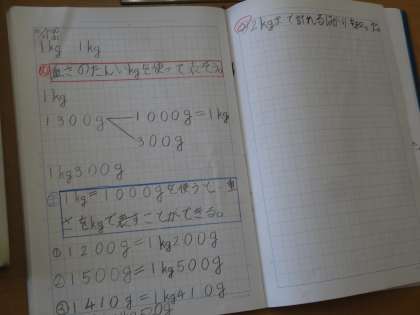 1kg 1kg
重さのたんいkgを使って表そう。
1kg
1300g 1000g=1kg
300g
1kg300g
1kg=1000gを使うと、重
さをkgで表すことができる。
①1200g=1kg200g
②1500g=1kg500g
③1410g=1kg410g
2kgまで計れるはかりを